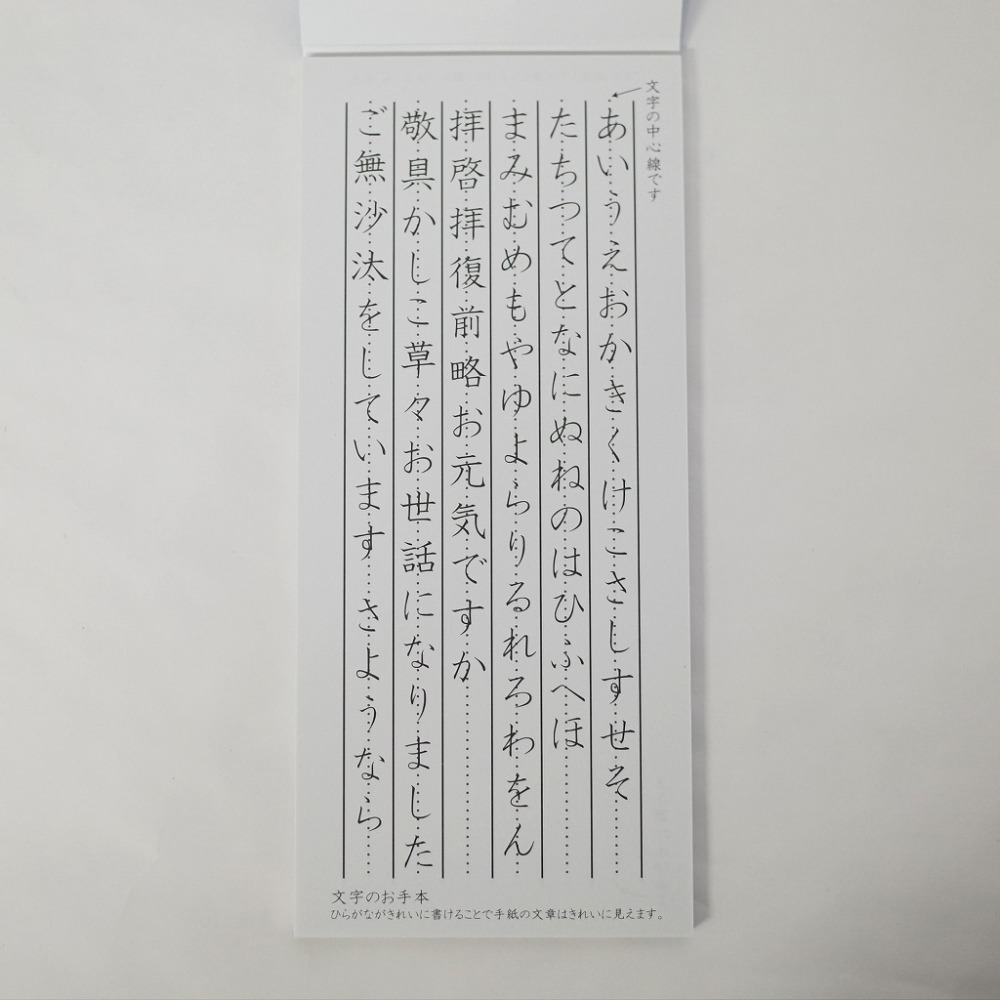 文字の中心線です
あいうえおかきくけこさしすせそ
たちつてとなにぬねのはひふへほ
まみむめもやゆよらりるれろわをん
拝啓拝復前略お元気ですか
敬具かしこ草々お世話になりました
ご無沙汰をしています さようなら
文字のお手本
ひらがながきれいに書けることで手紙の文章はきれいに見えます。